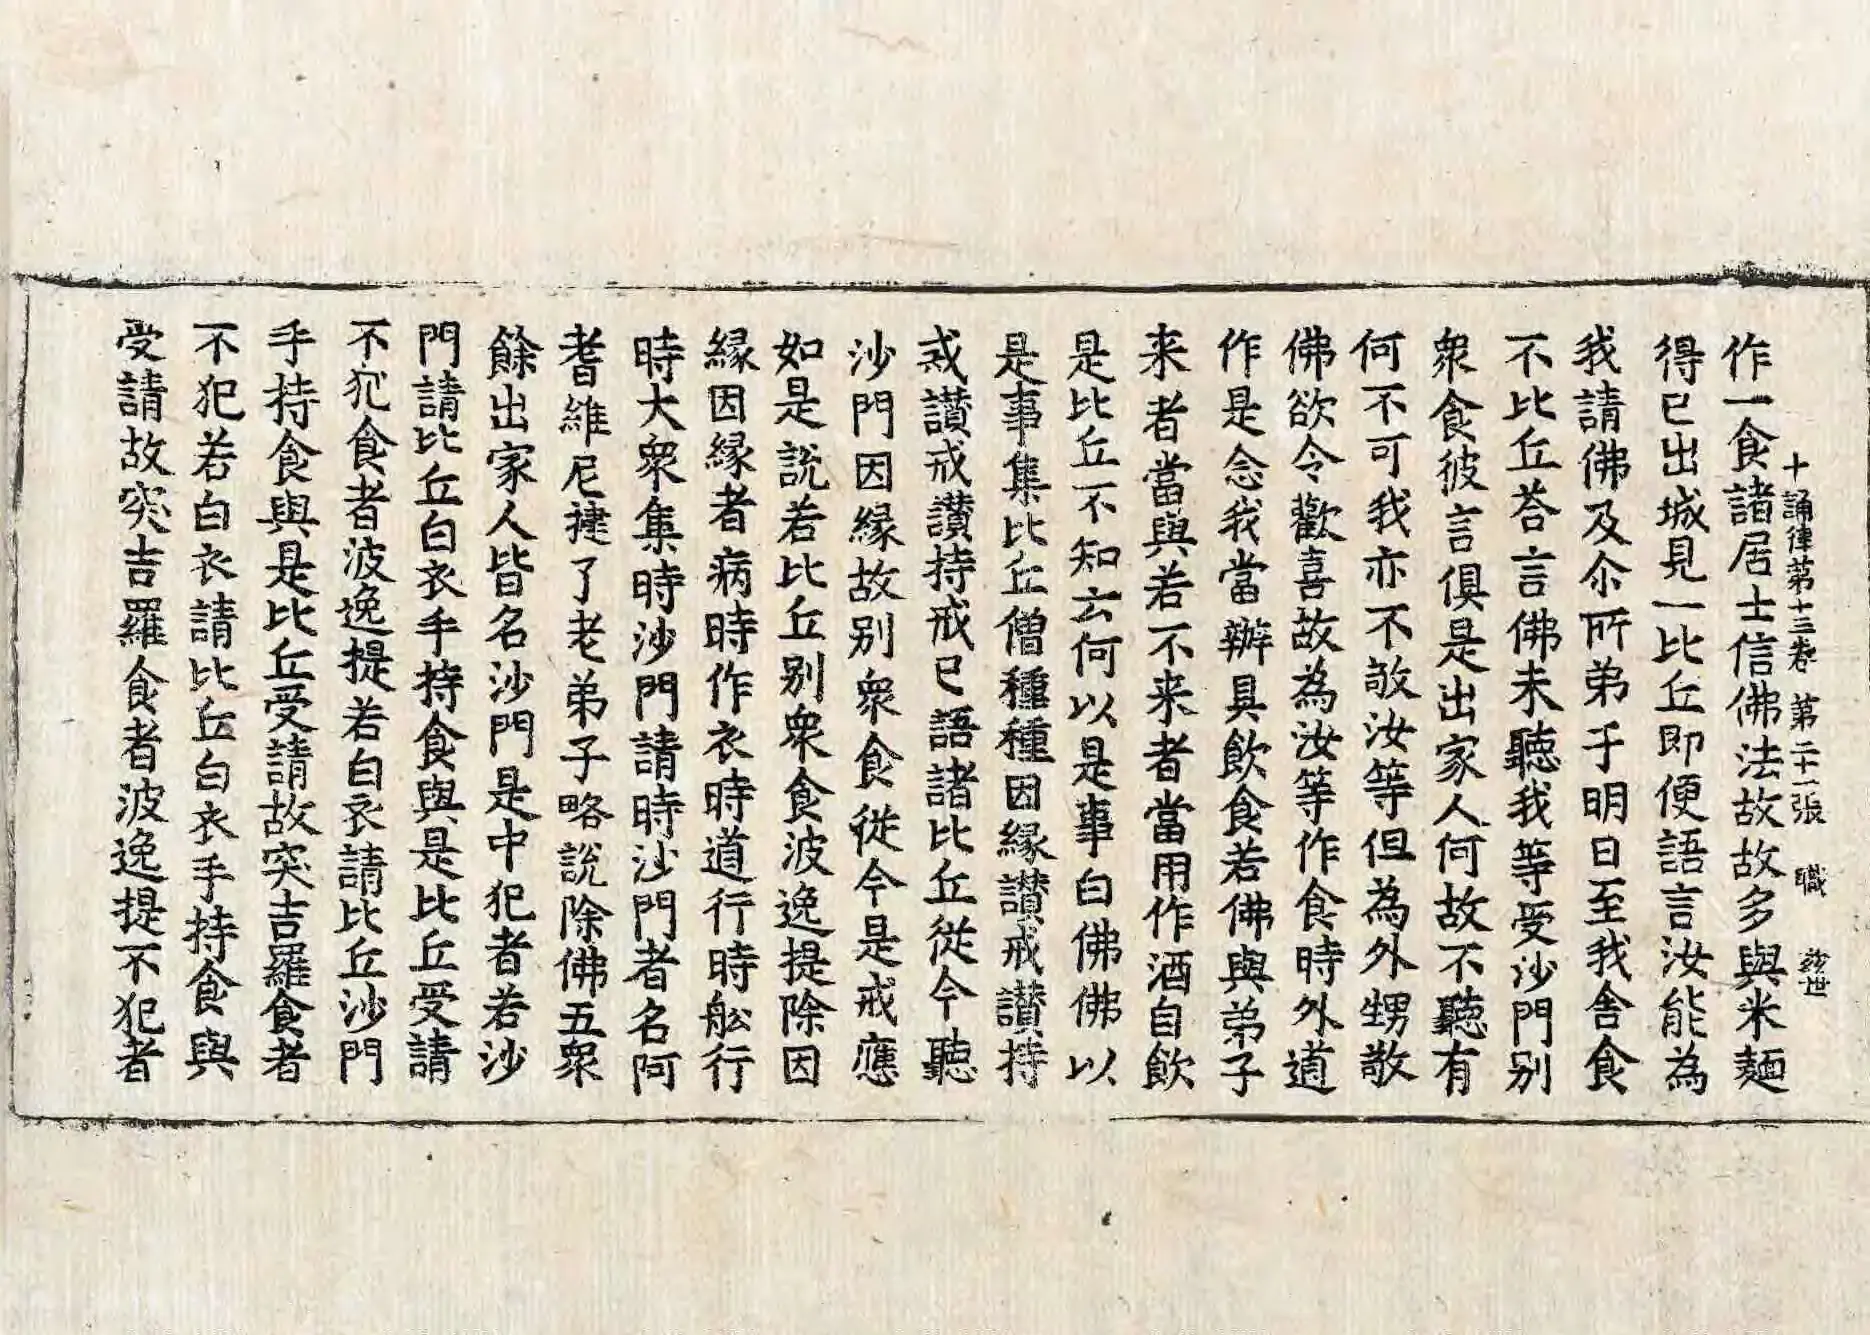 十誦律第十三卷 第二十一張 職
作一食諸居士信佛法故故多與米麺
得已出城見一比丘即便語言汝能為
我請佛及尒所弟子明日至我舍食
不比丘荅言佛未聽我等受沙門別
衆食彼言俱是出家人何故不聽有
何不可我亦不敬汝等但為外甥敬
佛欲令歡喜故為汝等作食時外道
作是念我當辦具飲食若佛與弟子
来者當與若不来者當用作酒自飲
是比丘不知云何以是事白佛佛以
是事集比丘僧種種因緣讃戒讃持
戒讃戒讃持戒已語諸比丘從今聽
沙門因緣故別衆食從今是戒應
如是說若比丘別衆食波逸提除因
緣因緣者病時作衣時道行時舩行
時大衆集時沙門請時沙門者名阿
耆維尼揵了老弟子略說除佛五衆
餘出家人皆名沙門是中犯者若沙
門請比丘白衣手持食與是比丘受請
不犯食者波逸提若白衣請比丘沙門
手持食與是比丘受請故突吉羅食者
不犯若白衣請比丘白衣手持食與
受請故突吉羅食者波逸提不犯者